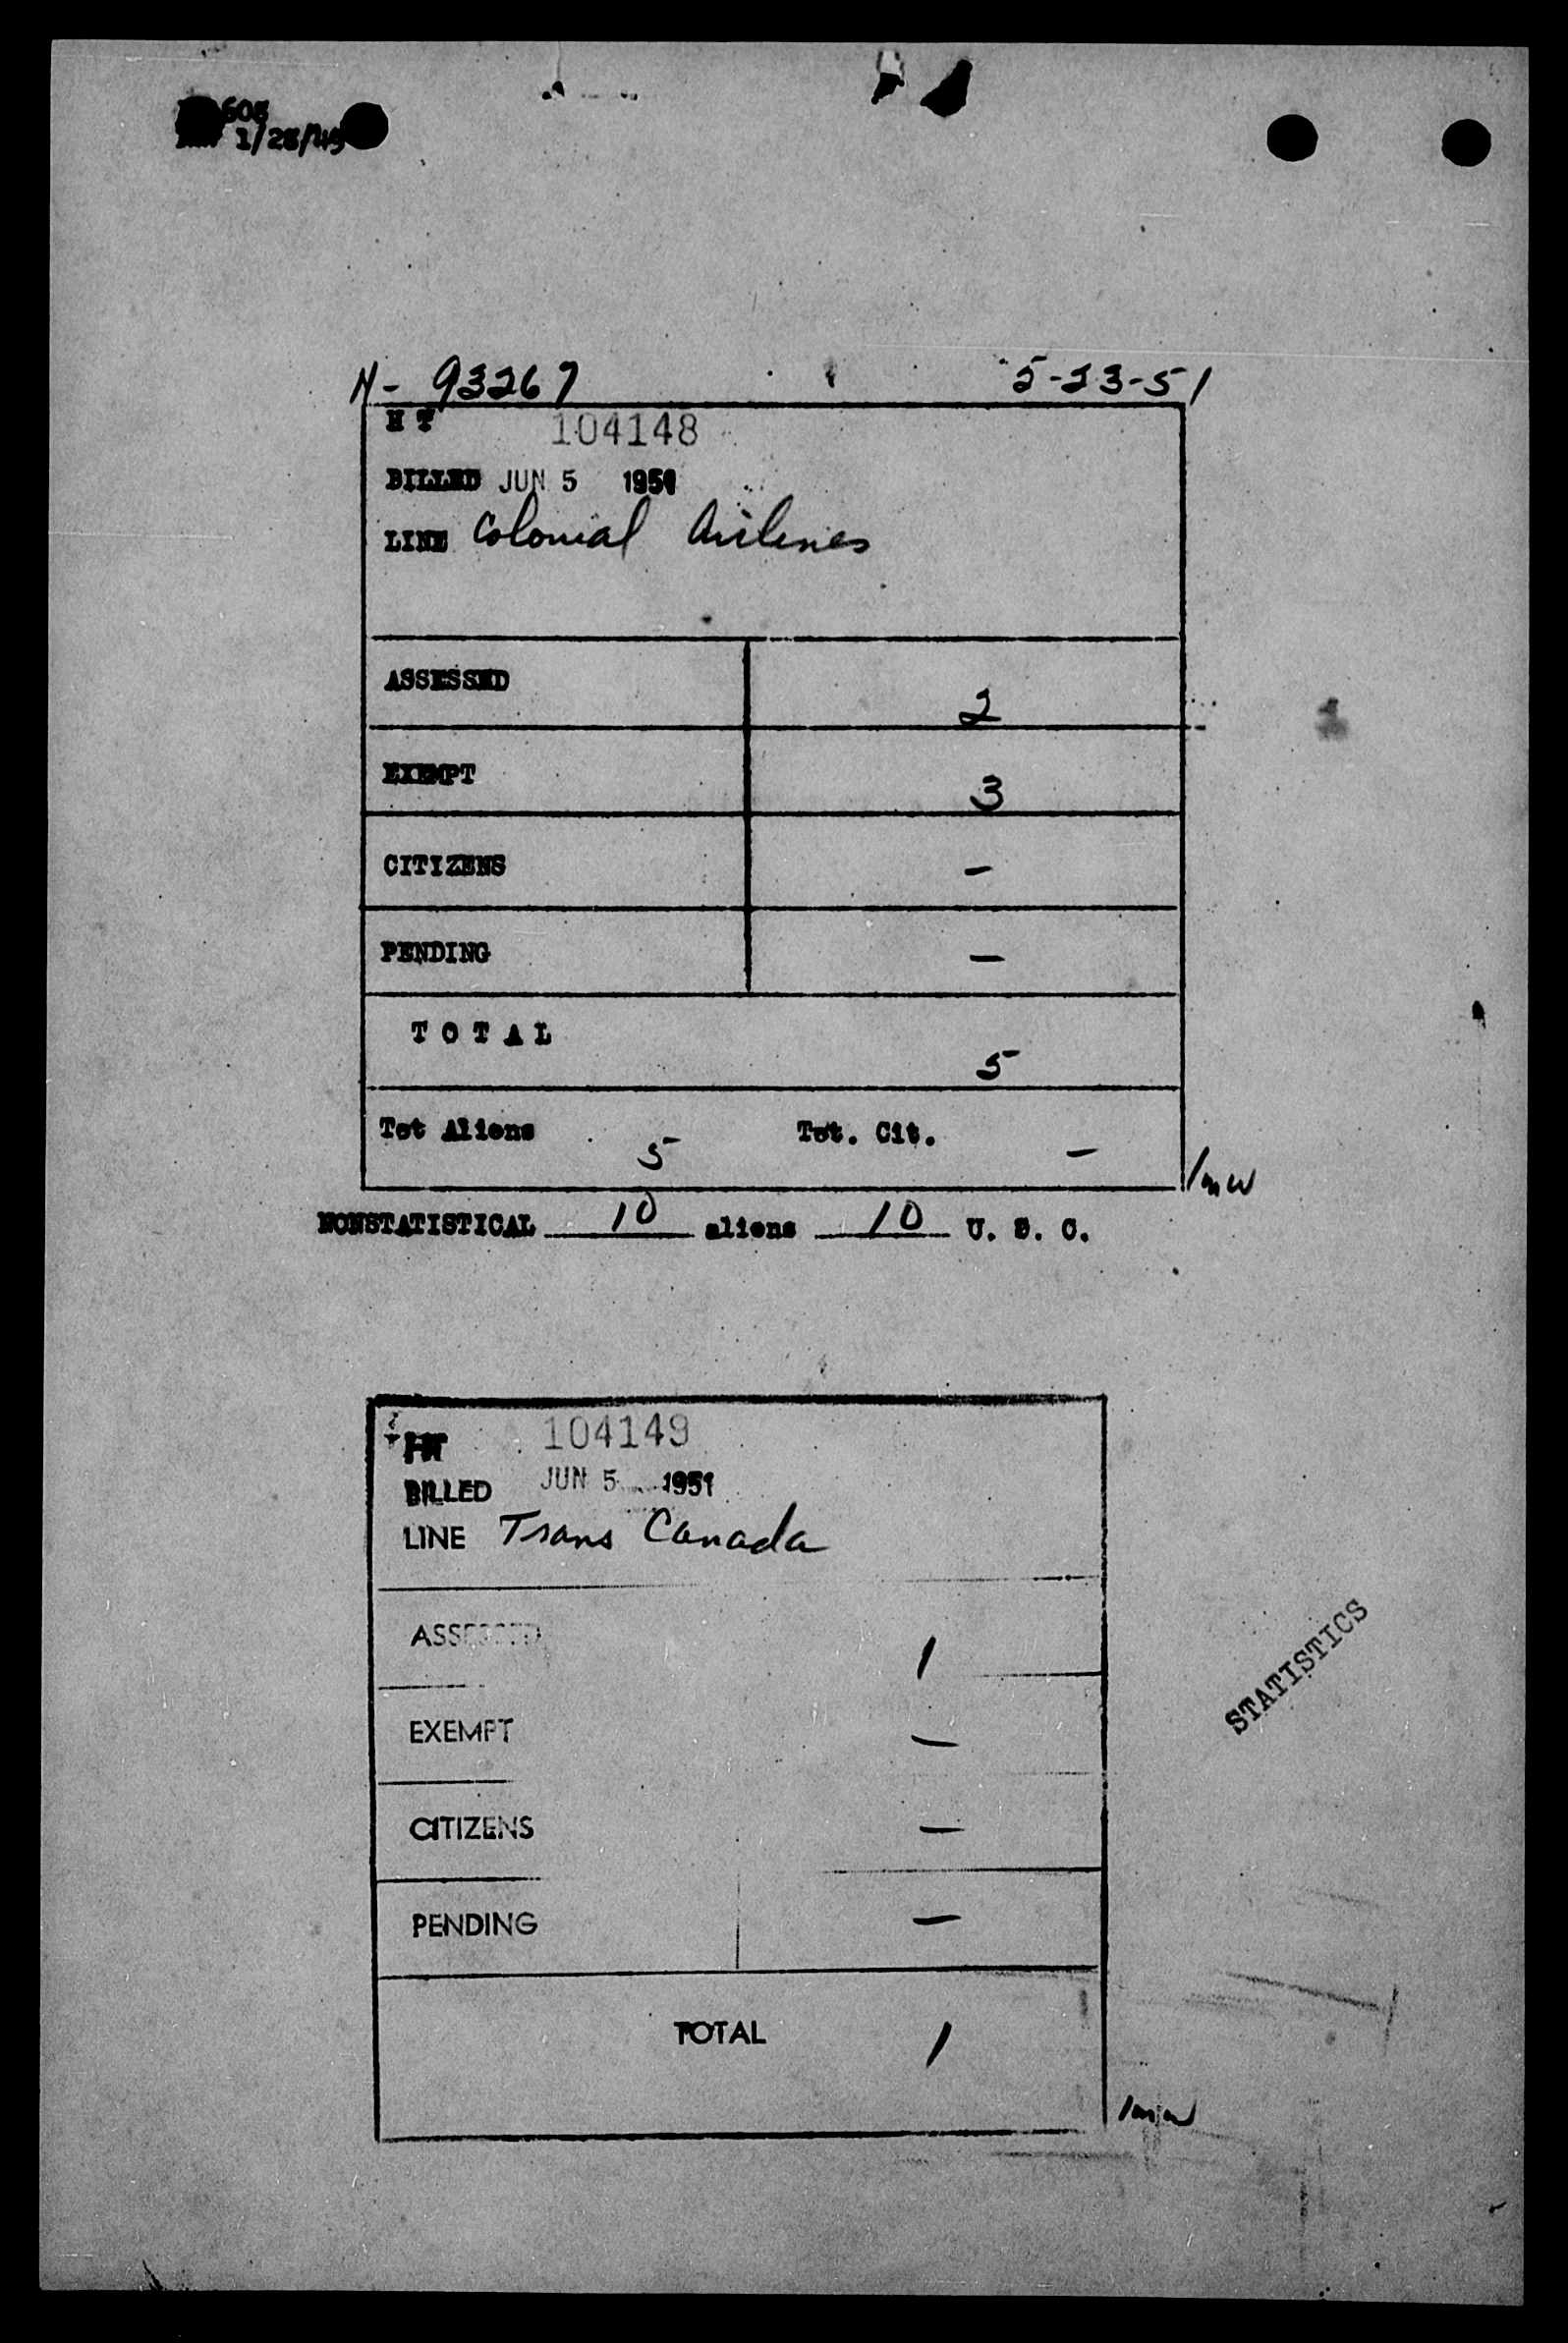 608
1/28/49
N- 93267 5-23-51
H T 104148
BILLED JUN 5 1951
LINE Colonial Airlines
ASSESSED 2
EXEMPT 3
CITIZENS -
PENDING -
T O T A L 5
Tot Aliens 5 Tot. Cit. -
/mw
NONSTATISTICAL 10 aliens 10 U. S. C.
HT 104149
BILLED JUN 5 1951
LINE Trans Canada
ASSESSED 1
EXEMPT -
CITIZENS -
PENDING -
TOTAL 1
/mw
STATISTICS